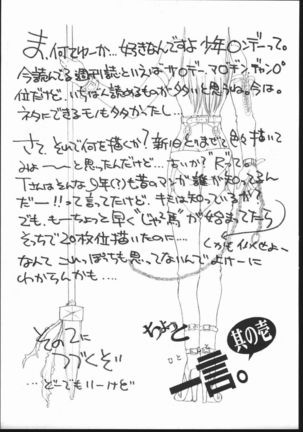 ま、何てゆーか…好きなんですよ少年○ンデーって。
今読んでる週刊読といえばサ○デー、マ○ジン、ジャンプ。
位だけど、いちばん読めるものが多いと思うね。今は。
ネタにできるモノも多かったし…
さて、それで何を描くか?新旧とりまぜて色々描いて
みよ〜〜と思ったんだけど…
だー!!って言てたけど、キミは知っているか?
でも、もーちょっと早く"じゃ馬"が始まってたら
そっちで20枚位描いたのに…
しかもイバくせよ〜
なんて これっぽっちも思ってないんでよけーに
わからんかも…。
その2に
つづくぞ
…どーでもいーけど
ちょっと
ひとこと
一言。
其の壱